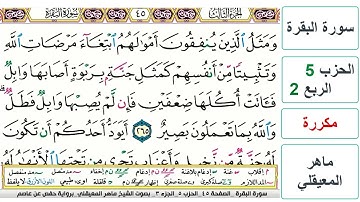 سورة البقرة
الحزب 5
الربع 2
مكررة
ماهر
المعيقلي
الجزء الثالث
٤٥
سورة البقرة
وَمَثَلُ ٱلَّذِينَ يُنفِقُونَ أَمْوَٰلَهُمُ ٱبْتِغَآءَ مَرْضَاتِ ٱللَّهِ
وَتَثْبِيتًا مِّنْ أَنفُسِهِمْ كَمَثَلِ جَنَّةٍۭ بِرَبْوَةٍ أَصَابَهَا وَابِلٌ
فَـَٔاتَتْ أُكُلَهَا ضِعْفَيْنِ فَإِن لَّمْ يُصِبْهَا وَابِلٌ فَطَلٌّ ۗ
وَٱللَّهُ بِمَا تَعْمَلُونَ بَصِيرٌ ٢٦٥ أَيَوَدُّ أَحَدُكُمْ أَن تَكُونَ
لَهُۥ جَنَّةٌ مِّن نَّخِيلٍ وَأَعْنَابٍ تَجْرِى مِن تَحْتِهَا ٱلْأَنْهَٰرُ لَهُۥ
سورة البقرة الصفحة ٤٥ الحزب ٥ الجزء ٣ بصوت الشيخ ماهر المعيقلي برواية حفص عن عاصم